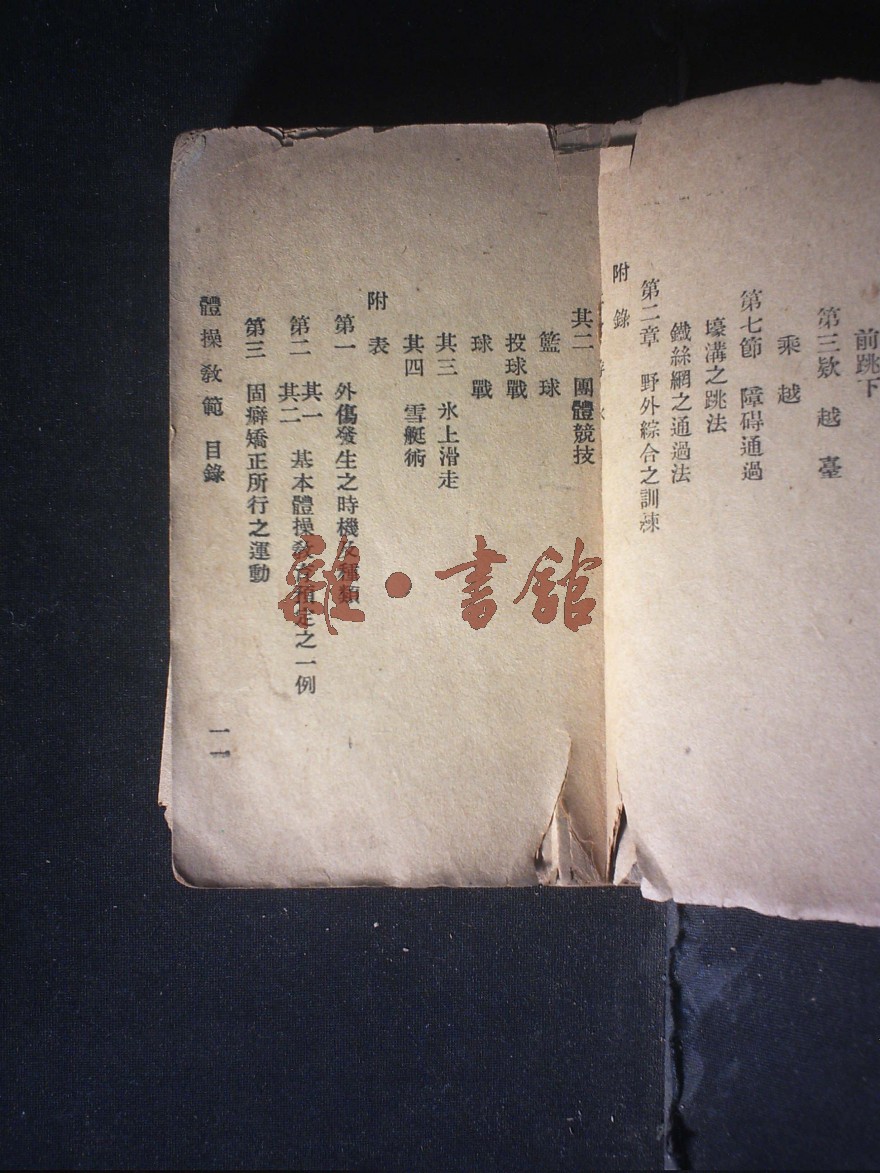 前跳下
第三欵　越　臺
乘　越
第七節　障碍通過
壕溝之跳法
鐵絲網之通過法
第二章　野外綜合之訓練
附　錄
其二　團體競技
籃　球
投球戰
球　戰
其三　氷上滑走
其四　雪艇術
附　表
第一　外傷發生之時機及種類
第二　其一　其二　基本體操教育預定之一例
第三　固癖矯正所行之運動
體操教範　目錄
一一
雜·書館